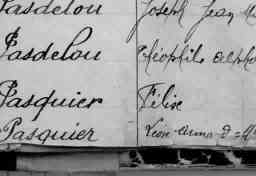 Pasdelou Joseph Jean M
Pasdelou Théophile Alpho
Pasquier Félix
Pasquier Léon